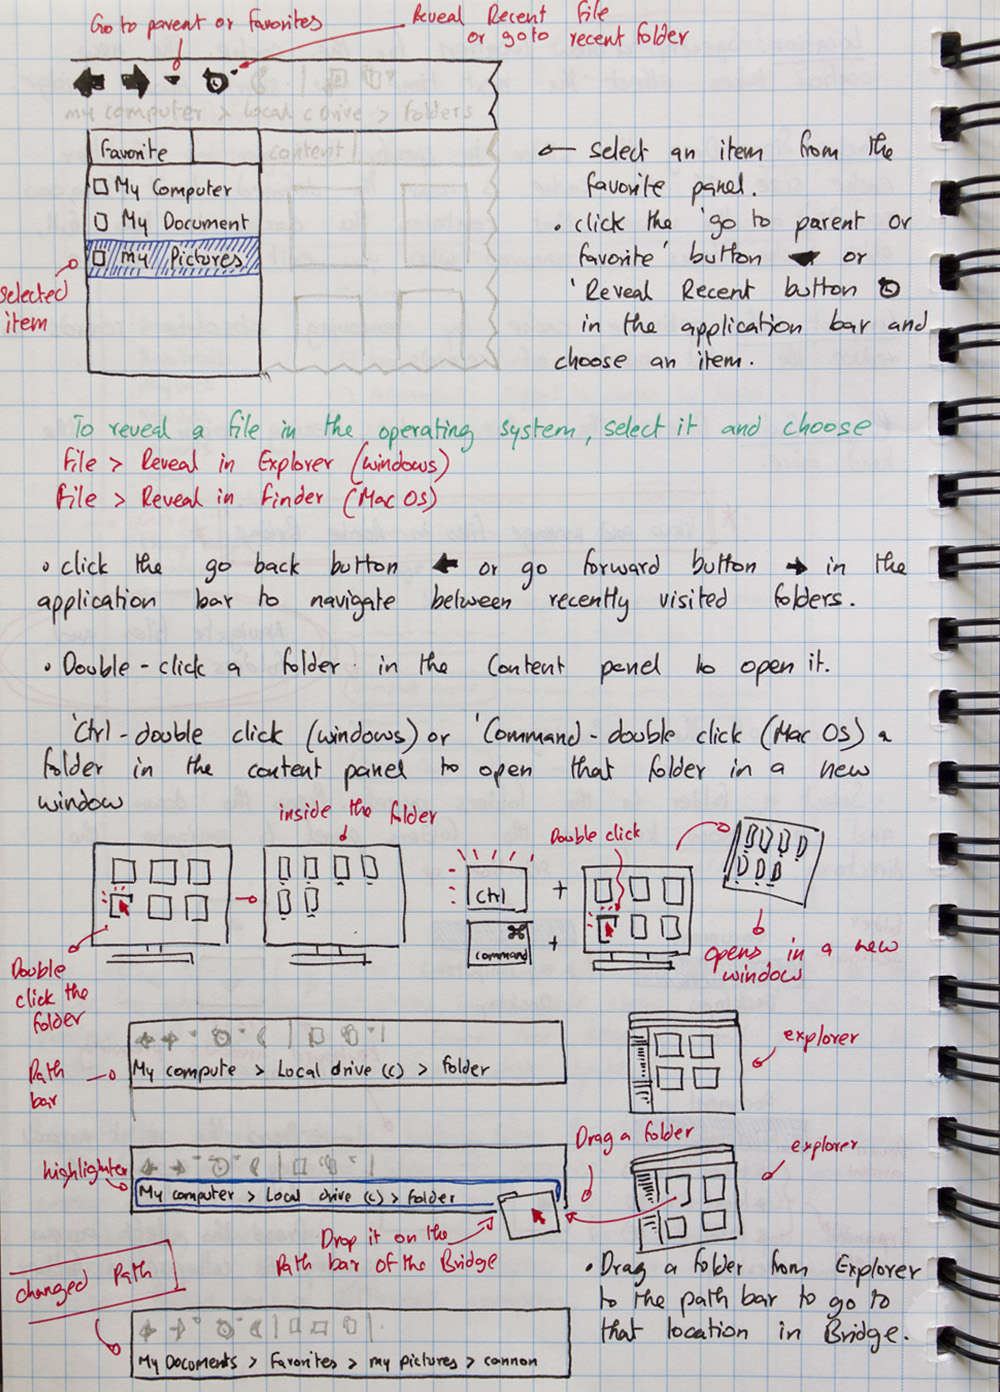 Go to parent or favorites
Reveal Recent file
or go to recent folder
my computer > local c drive > folders
Favorite
content
My Computer
My Document
my Pictures
selected
item
select an item from the
favorite panel.
• click the 'go to parent or
favorite' button or
'Reveal Recent button
in the application bar and
choose an item.
To reveal a file in the operating system, select it and choose
File > Reveal in Explorer (windows)
File > Reveal in Finder (Mac OS)
• click the go back button or go forward button in the
application bar to navigate between recently visited folders.
• Double-click a folder in the Content panel to open it.
'Ctrl-double click (windows) or 'Command-double click (Mac OS) a
folder in the content panel to open that folder in a new
window
inside the folder
Double click
Ctrl
+
⌘
command
+
opens in a new
window
Double
click the
folder
Path
bar
My compute > Local drive (c) > folder
explorer
highlighter
My computer > Local drive (c) > folder
Drag a folder
explorer
Drop it on the
Path bar of the Bridge
changed Path
• Drag a folder from Explorer
to the path bar to go to
that location in Bridge.
My Docoments > Favorites > my pictures > cannon